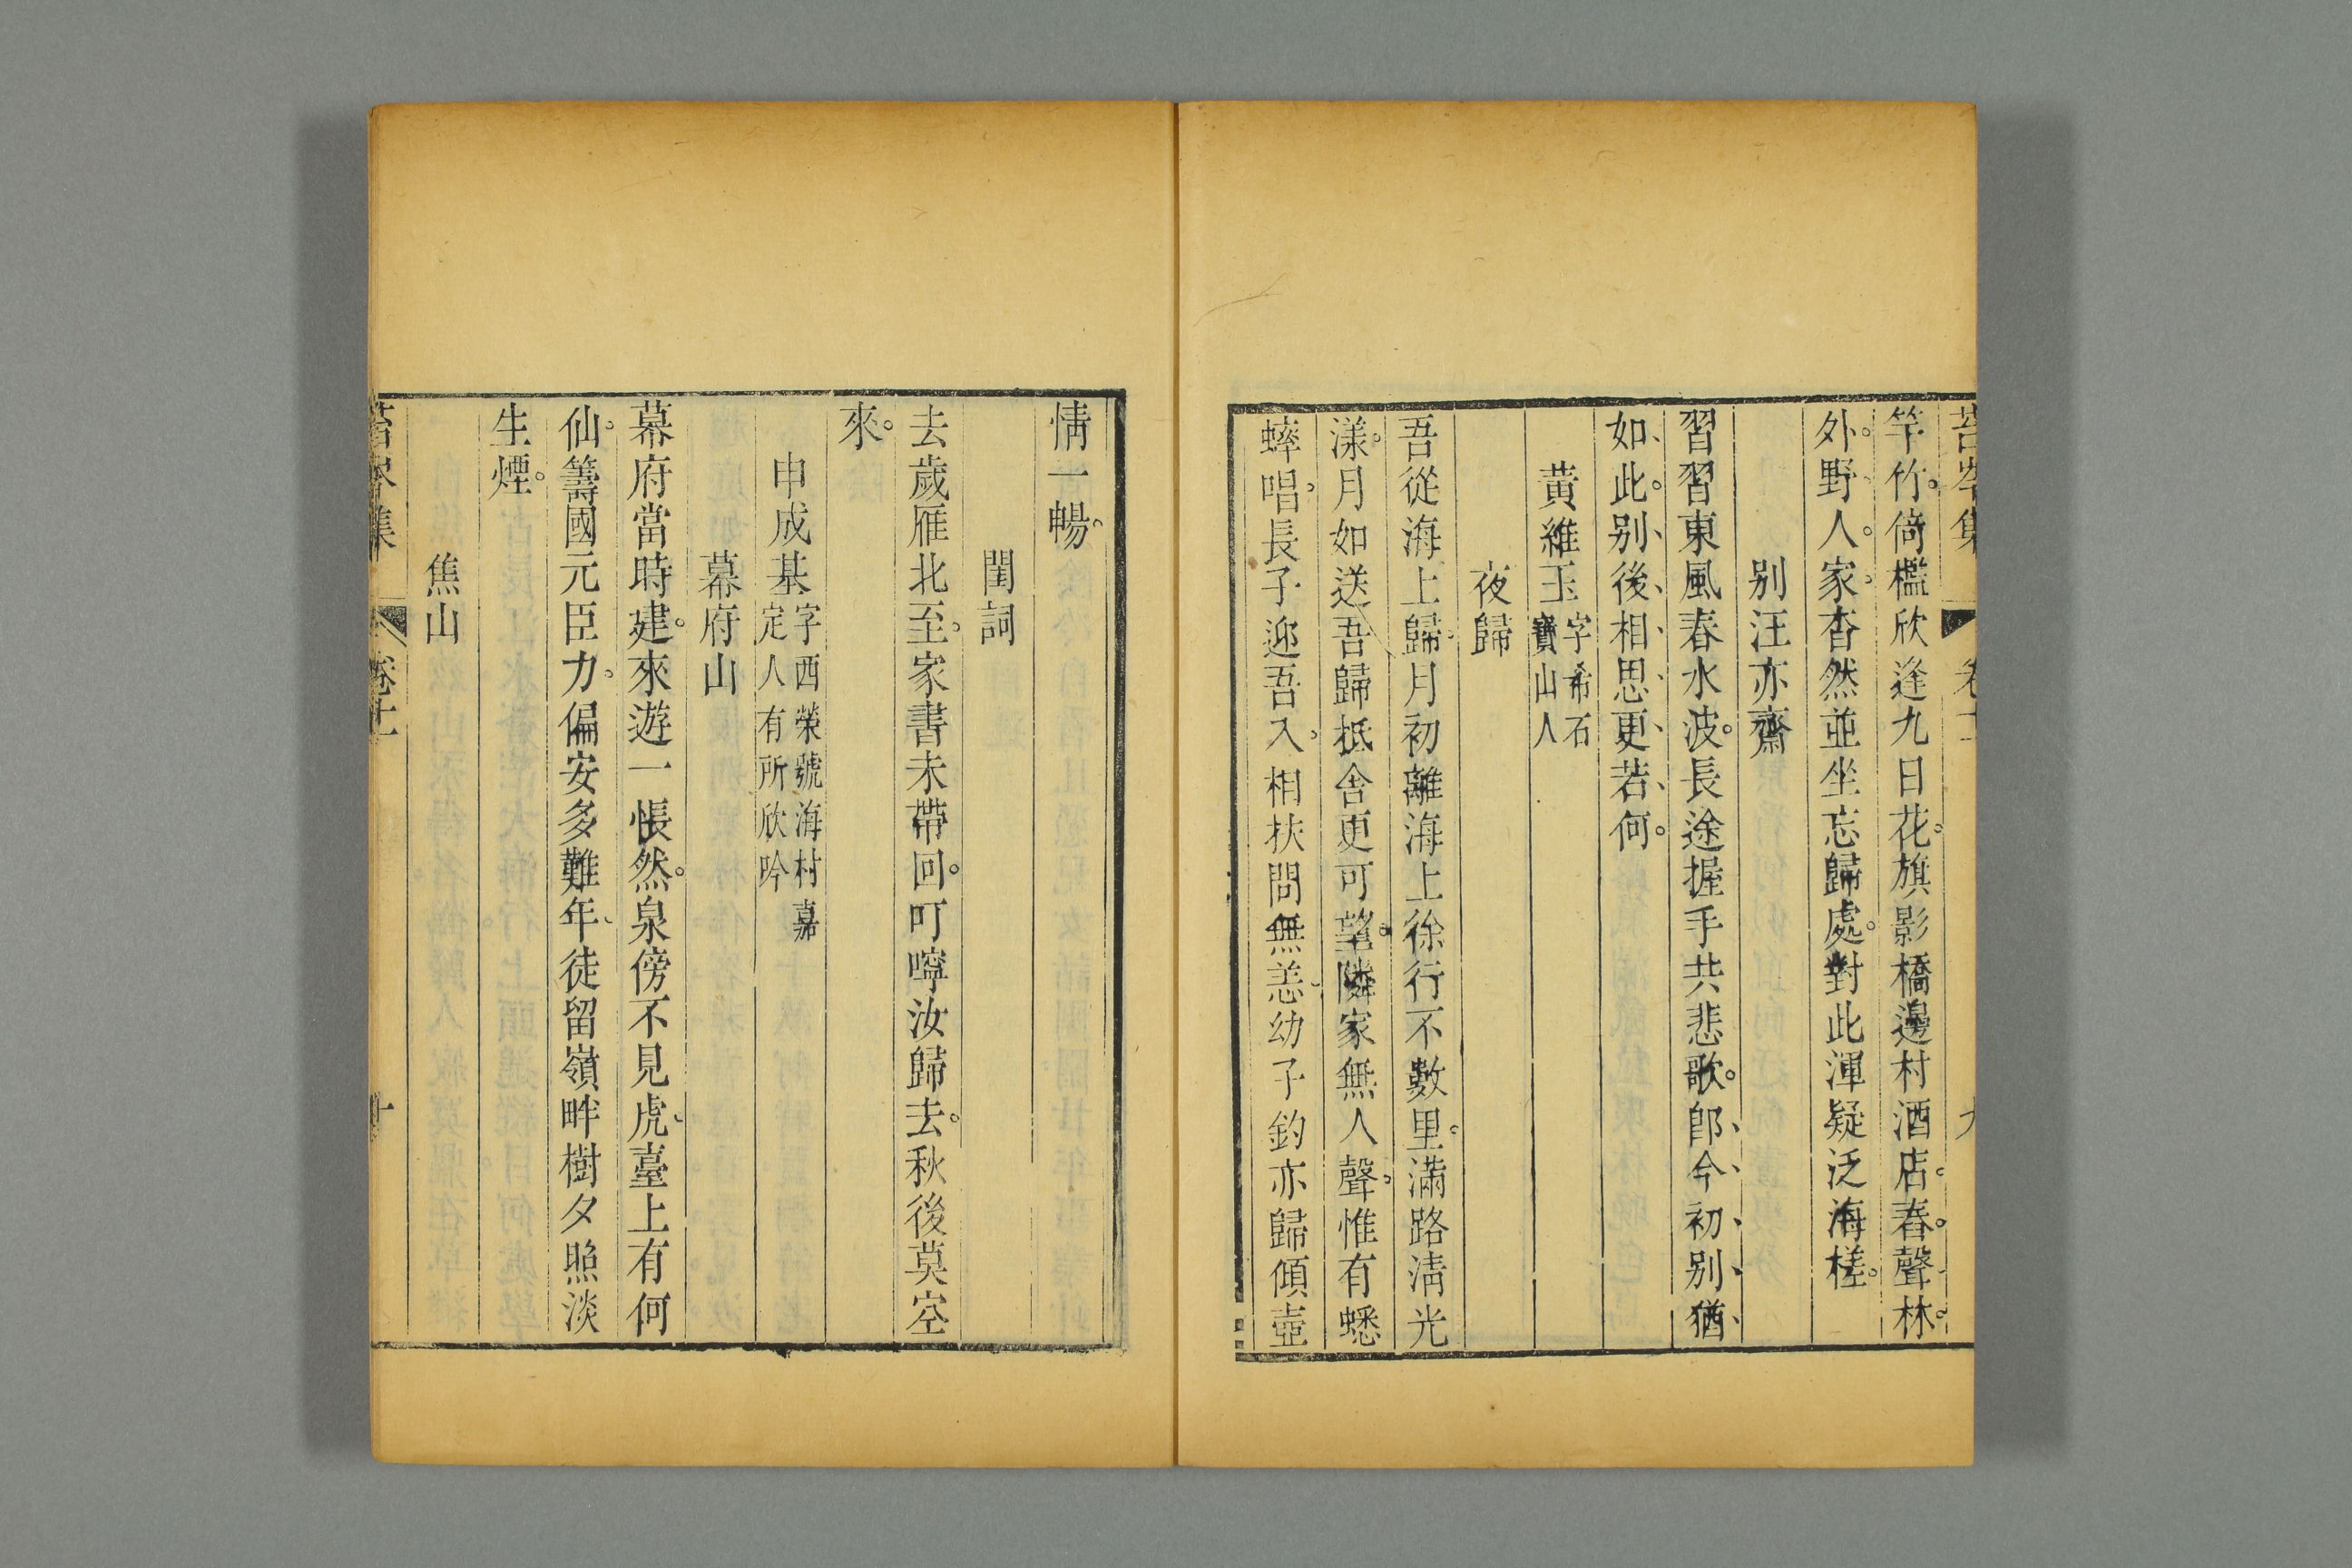 竿竹倚檻欣逢九日花旗影橋邊村酒店舂聲林
外野人家杳然並坐忘歸處對此渾疑泛海槎
别汪亦齋
習習東風春水波長途握手共悲歌郎今初别猶
如此别後相思更若何
黃維玉字希石
寶山人
夜歸
吾從海上歸月初離海上徐行不數里滿路淸光
漾月如送吾歸抵舍更可望隣家無人聲惟有蟋
蟀唱長子迎吾入相扶問無恙幼子釣亦歸傾壺
情一暢
閨詞
去歲雁北至家書未帶回叮嚀汝歸去秋後莫空
來
申成基字西榮號海村嘉
定人有所欣吟
幕府山
幕府當時建來遊一悵然泉傍不見虎臺上有何
仙籌國元臣力偏安多難年徒留嶺畔樹夕照淡
生煙
焦山
集